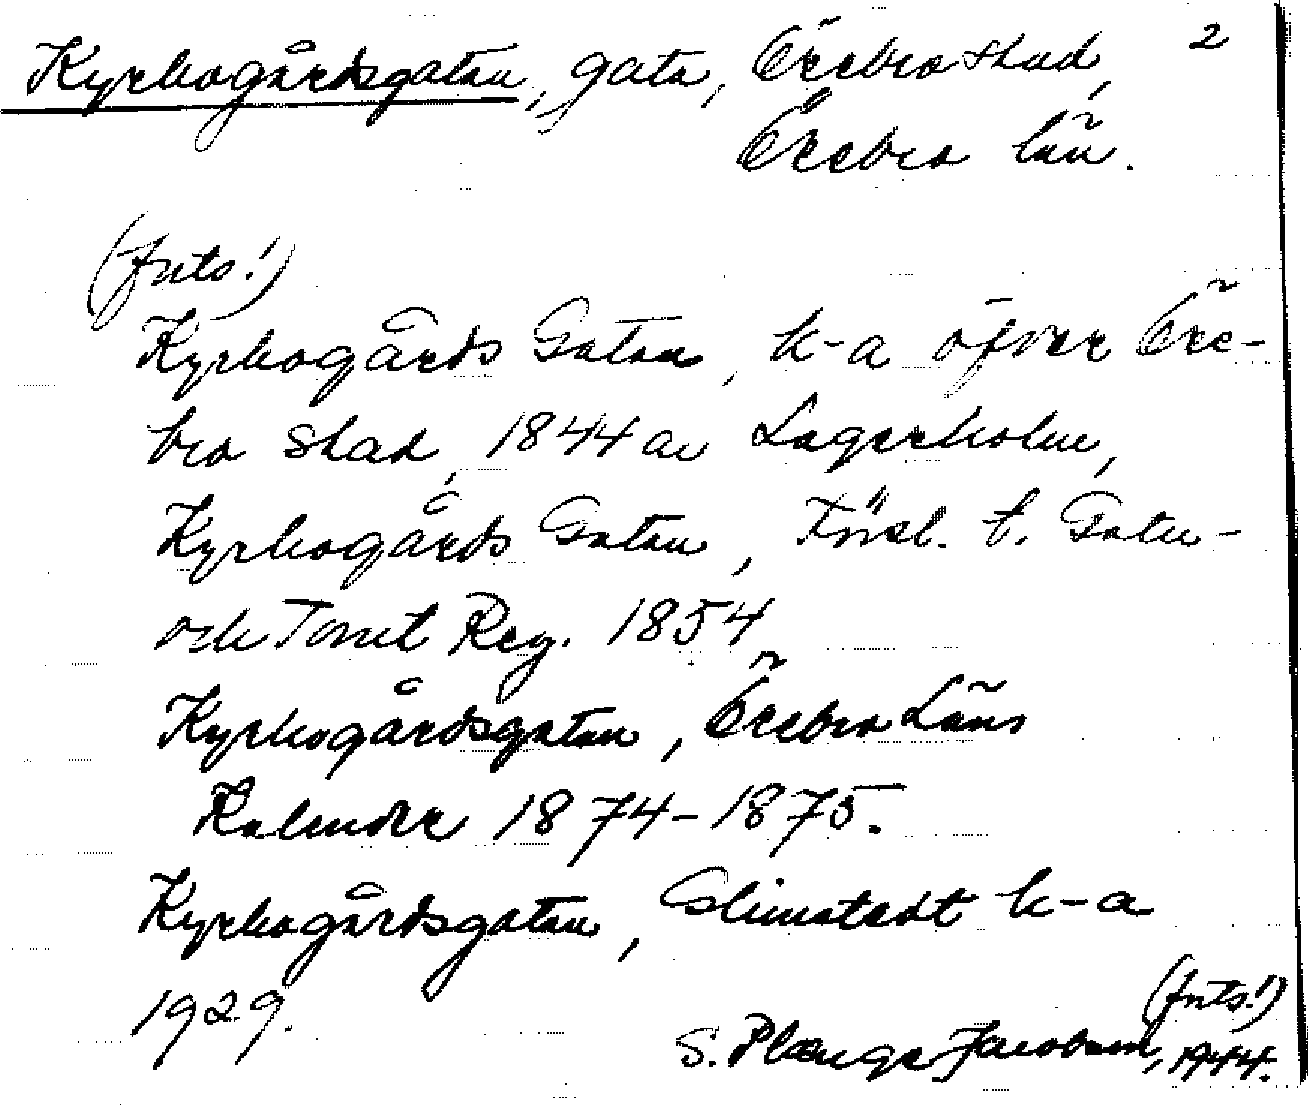 Kyrkogårdsgatan, gata, Örebro stad, 2
Örebro län.
(forts!)
Kyrkogårds Gatan, k-a öfver Öre-
bro stad, 1844 av Lagerholm,
Kyrkogårds Gatan, Försl. t. Gatu-
och Tomt Reg. 1854
Kyrkogårdsgatan, Örebro Läns
Kalender 1874-1875.
Kyrkogårdsgatan, Glimstedt k-a
1929.
(forts!)
S. Plænge Jacobson, 1944.